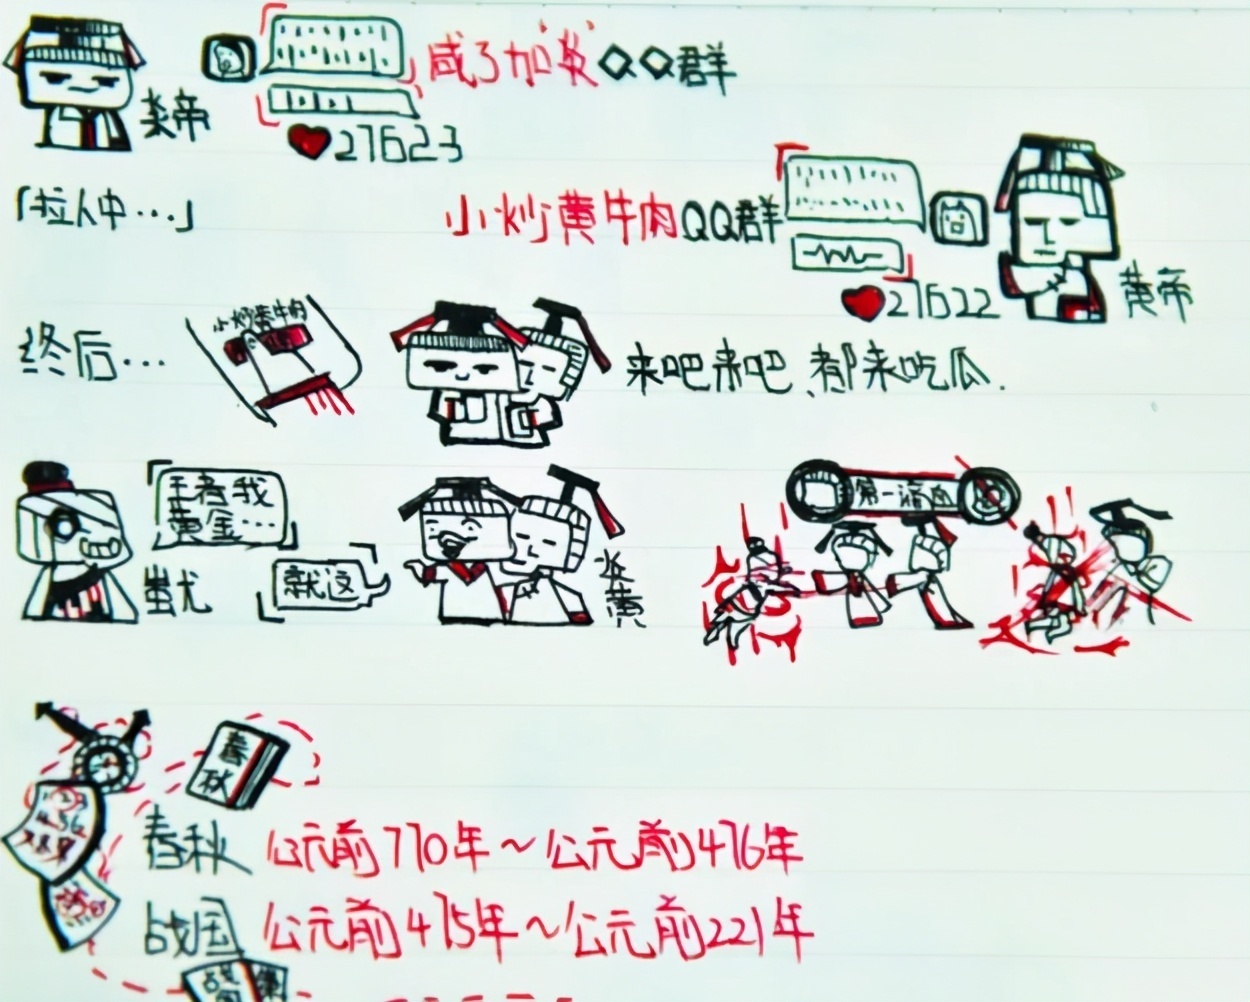 咸了加炎QQ群
炎帝
❤27623
「拉人中…」
小炒黄牛肉QQ群
❤27622
黄帝
终后…
小炒黄牛肉
来吧来吧、都来吃瓜.
王者我
黄金…
蚩尤
就这
炎黄
第一滴血
春
秋
春秋 公元前770年~公元前476年
战国 公元前475年~公元前221年
战
国